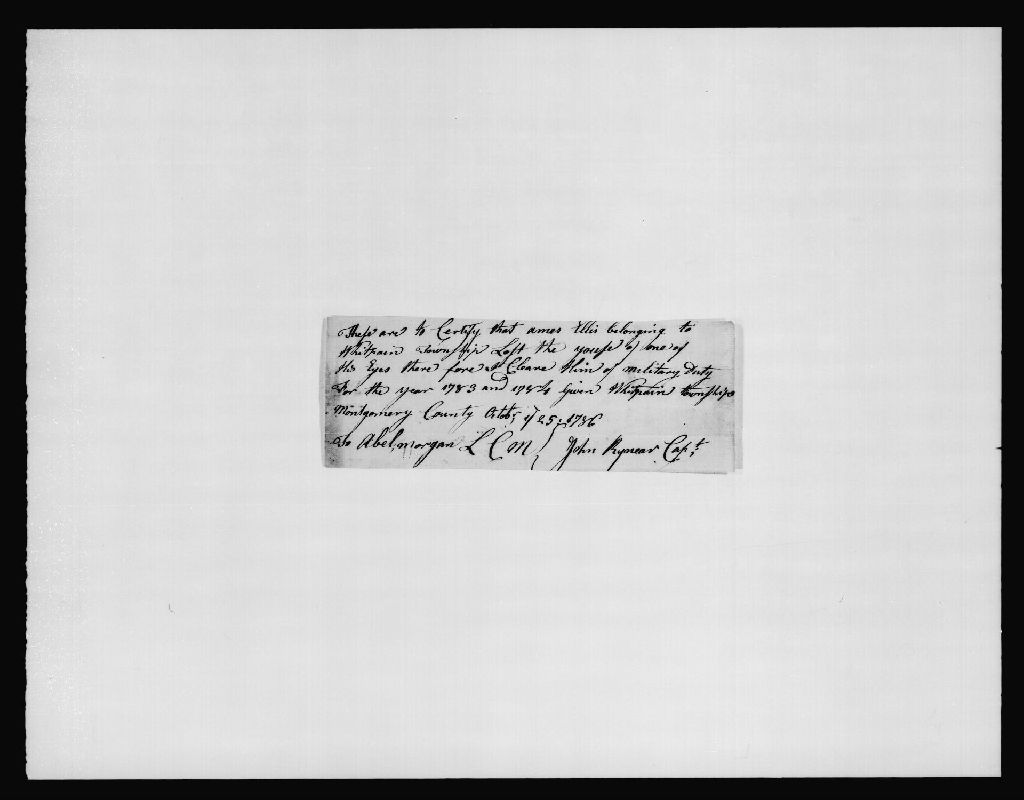 These are to Certify that amos Ellis belonging to
Whitpain Township Lost the youse of one of
His Eyes there fore I Cleare Him of military Duty
For the year 1783 and 1784 Given Whitpain township
Montgomery County Octob; ye 25; 1786
To Abel morgan L C M John Rynear Capt